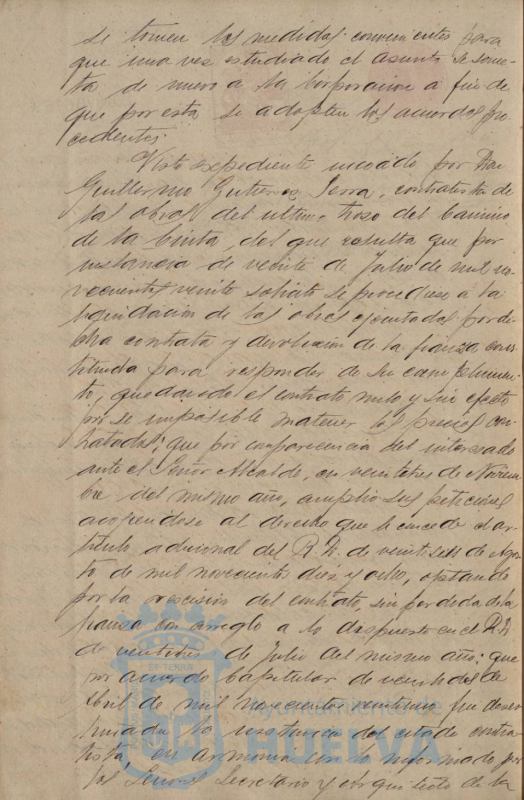 se tomen las medidas convenientes para
que una vez estudiado el asunto se some-
ta de nuevo a la Corporacion a fin de
que por esta se adopten los acuerdos pro-
cedentes.
Visto expediente incoado por Don
Guillermo Gutierrez Serra, contratista de
las obras del ultimo trozo del Camino
de la Cinta, del que resulta que por
instancia de veinte de Julio de mil no-
vecientos veinte solicitó se procediese a la
liquidacion de las obras ejecutadas por di-
cha contrata y devolucion de la fianza cons-
tituida para responder de su cumplimien-
to, quedando el contrato nulo y sin efecto
por se imposible mantener los precios con-
tratados; que por comparecencia del interesado
ante el Señor Alcalde, en veintitres de Noviem-
bre del mismo año, amplió sus peticiones
acogiendose al derecho que le concede el ar-
tículo adicional del R. D. de veintiseis de Agos-
to de mil novecientos diez y ocho, optando
por la rescision del contrato, sin perdida de la
fianza con arreglo a lo dispuesto en el R. D.
de veintitres de Julio del mismo año; que
por acuerdo Capitular de veintidos de
Abril de mil novecientos veintiuno fue deses-
timada la instancia del citado contra-
tista, en armonia con lo informado por
los Señores Secretario y Arquitecto de la
Ayuntamiento de
HUELVA